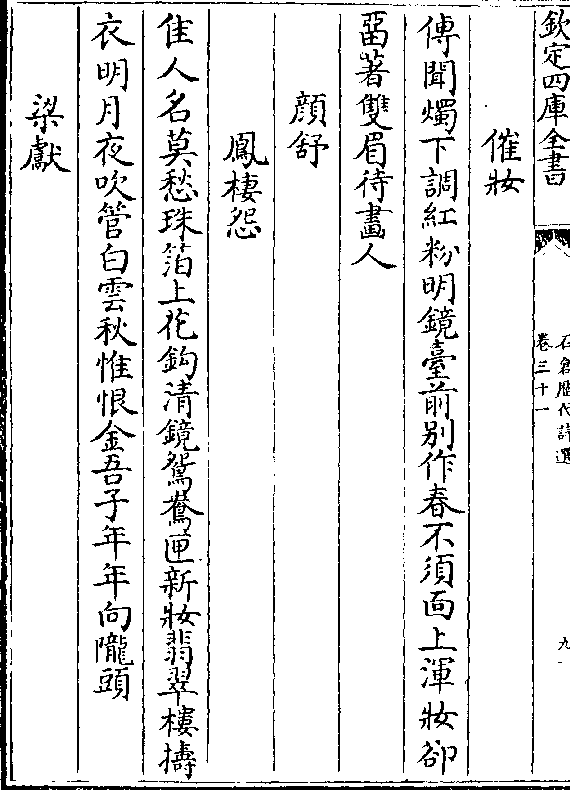 欽定四庫全書
石倉歷代詩選
卷三十一
九
催妝
傳聞燭下調紅粉明鏡臺前别作春不須面上渾妝卻
留著雙眉待畫人
顔舒
鳳棲怨
佳人名莫愁珠箔上花鈎清鏡鴛鴦匣新妝翡翠樓擣
衣明月夜吹管白雲秋惟恨金吾子年年向隴頭
梁獻